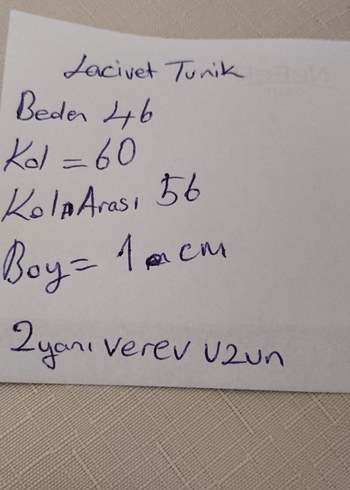 Lacivet Tunik
Beden 46
Kol = 60
Kol Arası 56
Boy = 1 cm
2 yanı verev uzun